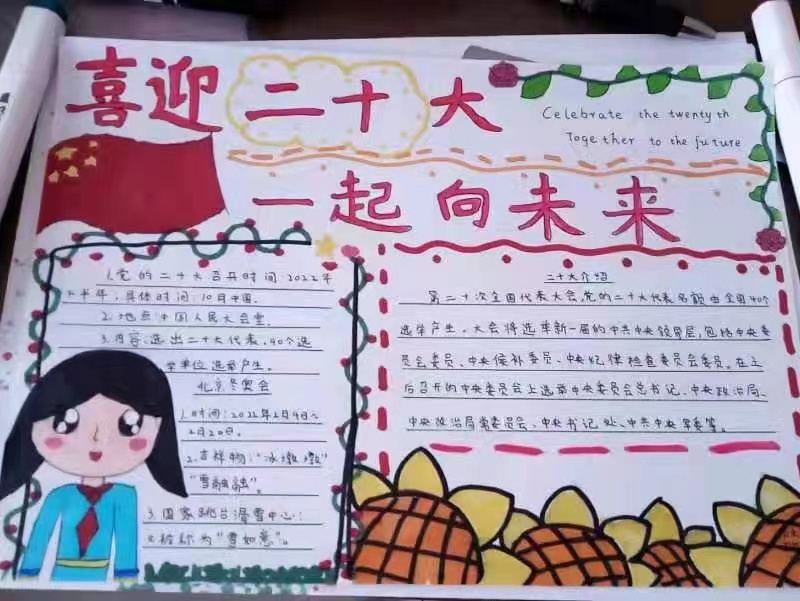 喜迎二十大
Celebrate the twentyth
Together to the future
一起向未来
1.党的二十大召开时间:2022年
下半年,具体时间:10月中国.
2.地点:中国人民大会堂.
3.内容:选出二十大代表,40个选
举单位选举产生.
北京冬奥会
1.时间:2022年2月4日~
2月20日.
2.吉祥物:"冰墩墩"
"雪融融".
3.国家跳台滑雪中心:
又被称为"雪如意".
二十大介绍
第二十次全国代表大会,党的二十大代表名额由全国40个
选举产生,大会将选举新一届的中共中央领导层,包括中央委
员会委员、中央候补委员、中央纪律检查委员会委员,在之
后召开的中央委员会上选举中央委员会总书记、中央政治局、
中央政治局常委员会、中央书记处、中共中央军委等。